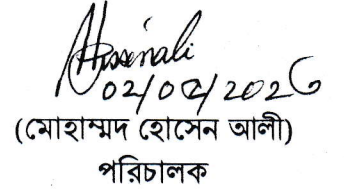 Hossenali
02/04/2026
(মোহাম্মদ হোসেন আলী)
পরিচালক